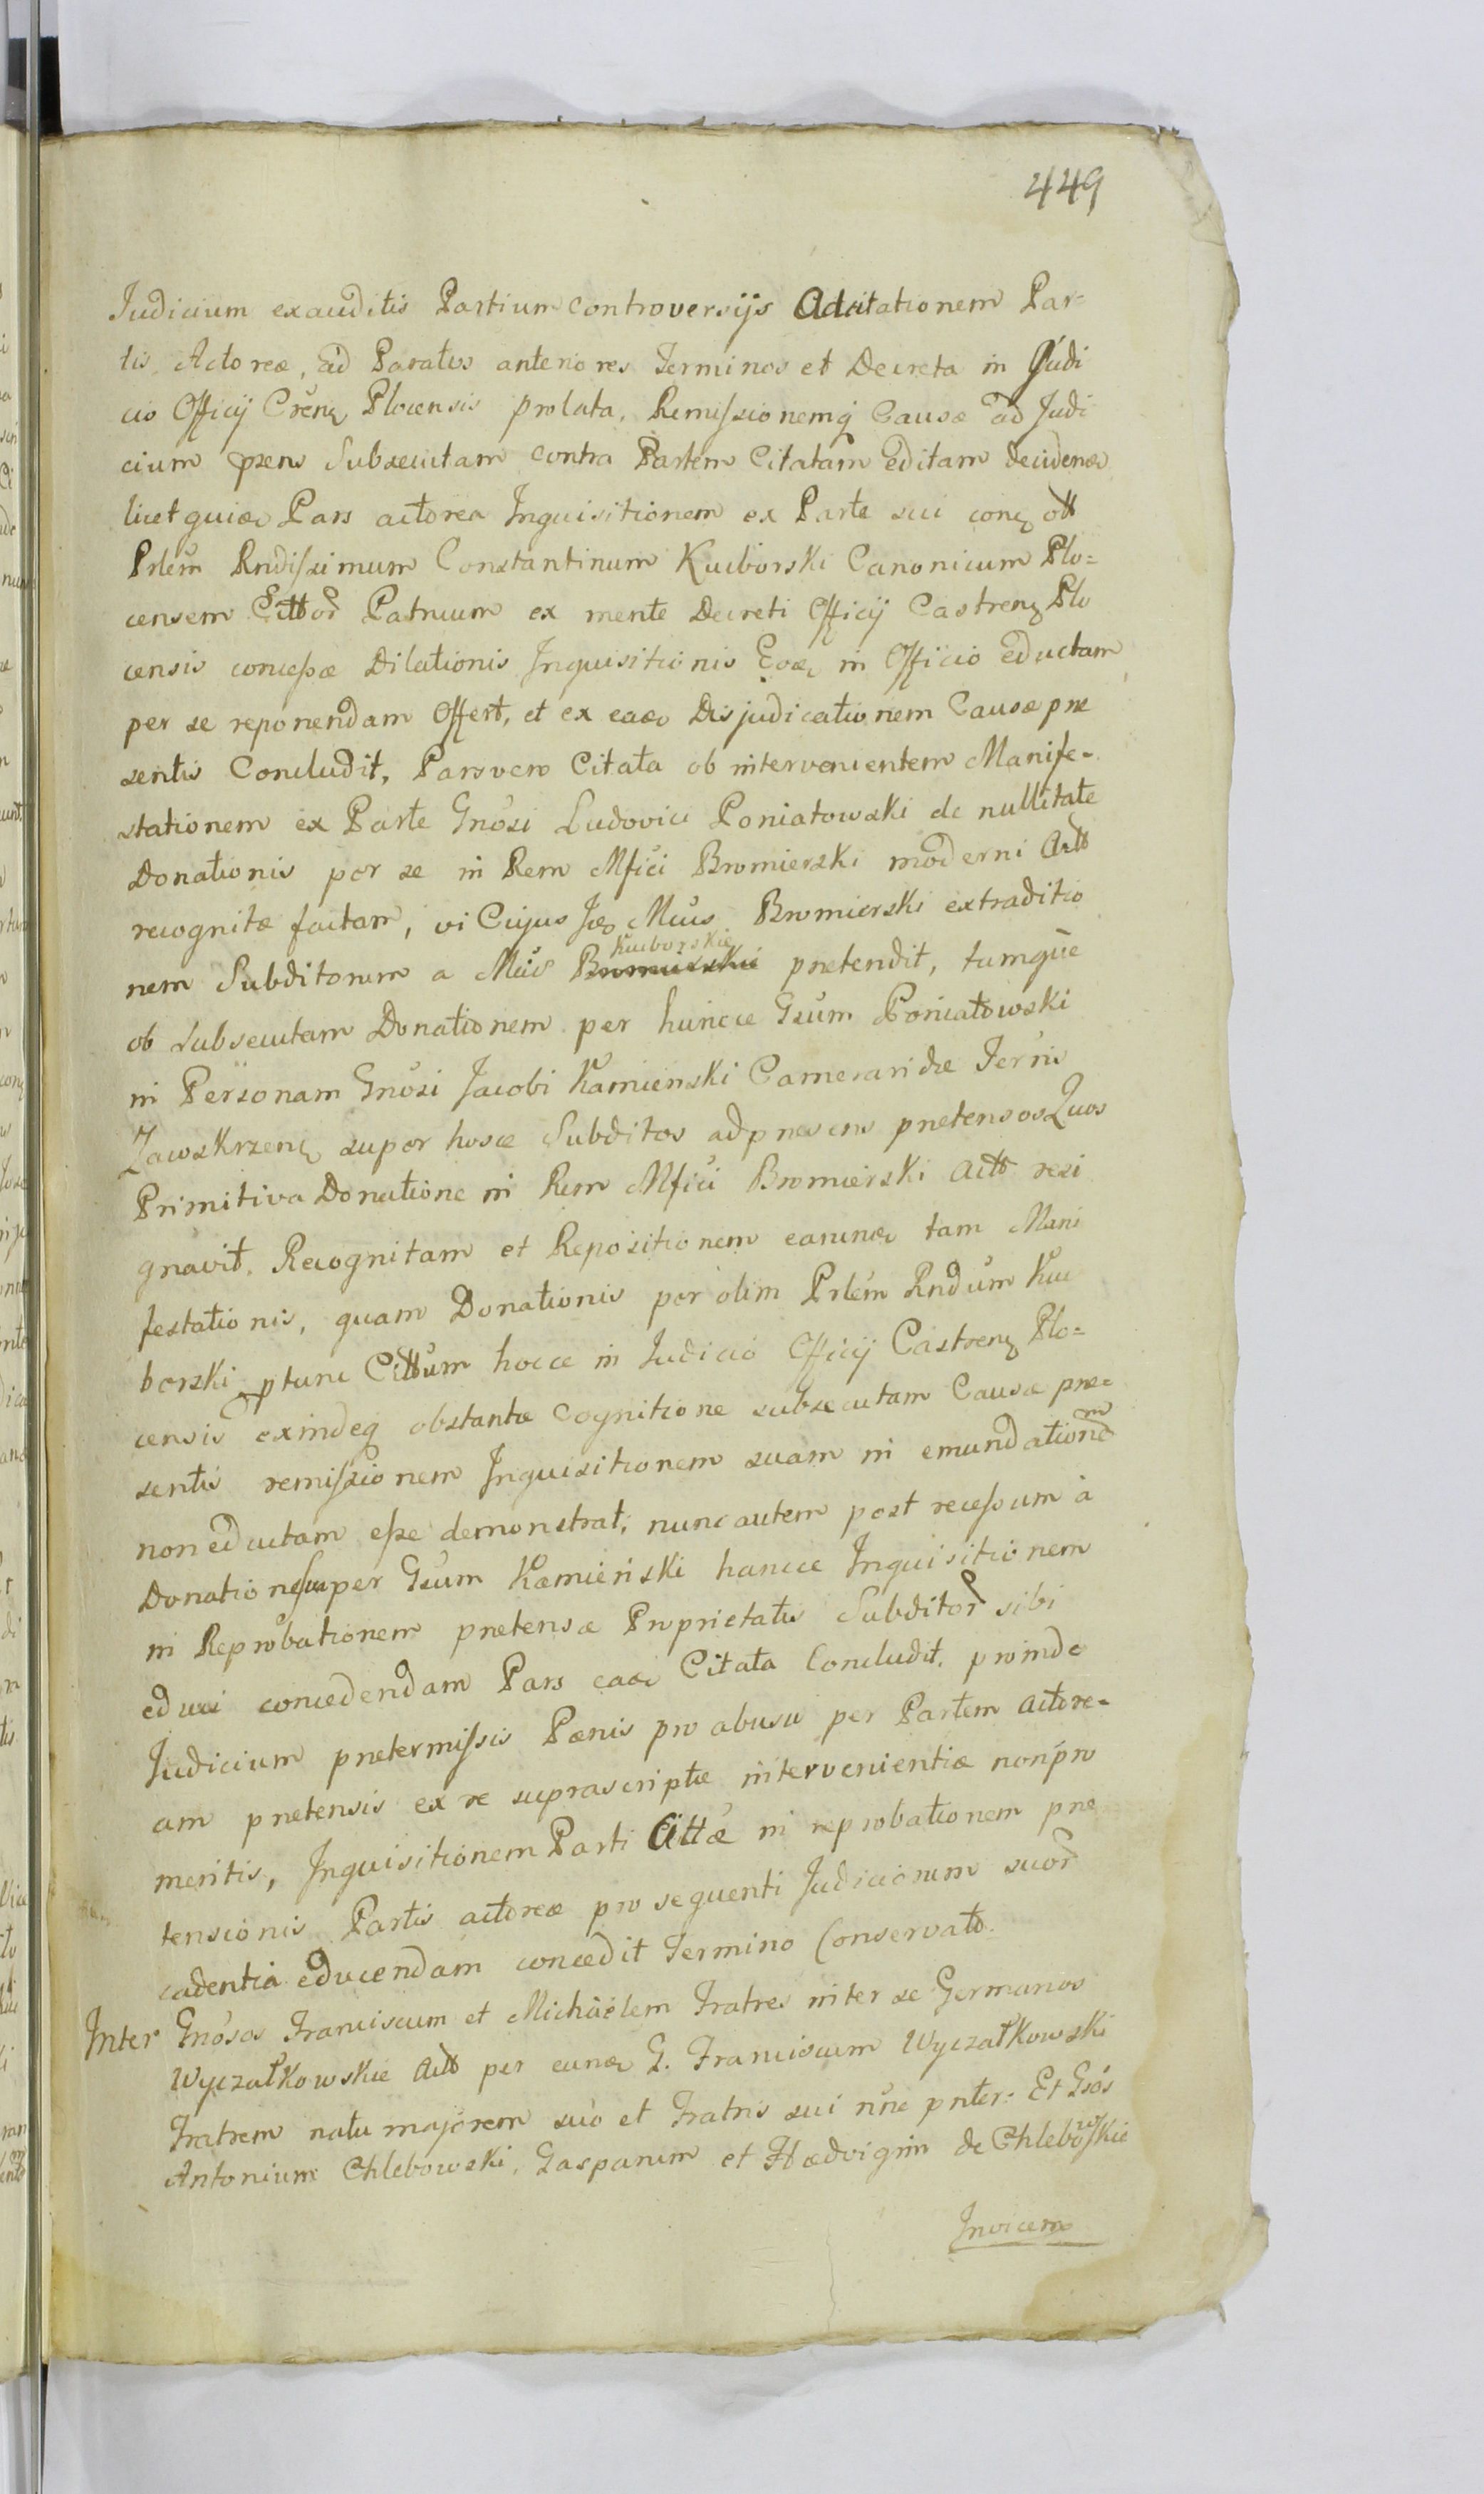 449
Judicium exauditis Partium controversijs Adcitationem Par=
tis Actoreæ, ad Paratas anteriores Terminos et Decreta in Judi
cio Officij Cren Plocensis prolata, Remissionemq Causæ ad Judi
cium præns Subsecutam contra Partem Citatam Editam decidendo
licet quidem Pars actorea Inquisitionem ex Parte sui con ott
Prlem Rndissimum Constantinum Kuciborski Canonicum Plo=
censem Cittor Patruum ex mente Decreti Officij Castren Plo
censis concessæ Dilationis Inquisitionis in Officio eductam
per se reponendam Offert, et ex eadem Disjudicationem Causæ præ
sentis Concludit, Pars vero Citata ob intervenientem Manife-
stationem ex Parte Gnosi Ludovici Poniatowski de nullitate
Donationis per se in Rem Mfici Bromierski moderni Actt
recognitæ factam, vi Cujus Mcus Bromierski extraditio
nem Subditorum a Mcis Kuciborskie prætendit, tumque
ob subsecutam Donationem per huncce Gsum Poniatowski
in Personam Gnosi Jacobi Kamienski Cameraridæ Terris
Zawskrzen super hosce Subditos ad præsens prætensos Quos
Primitiva Donatione in Rem Mfici Bromierski Actt resi
gnavit, Recognitam et Repositionem earundem tam Mani
festationis, quam Donationis per olim Prlem Rndum Kuci
borski ptunc Cittum hocce in Judicio Officij Castren Plo=
censis exindeq obstante Cognitione subsecutam Causæ præ=
sentis remissionem Inquisitionem suam in emundationem
non eductam esse demonstrat, nunc autem post recessum à
Donatione super Gsum Kamieński hancce Inquisitionem
in Reprobationem prætensæ Proprietatis Subditor sibi
educi concedendam Pars eadem Citata Concludit, proinde
Judicium prætermissis Pænis pro abusu per Partem actore=
am prætensis ex re suprascriptæ intervenientiæ non pro
meritis, Inquisitionem Parti Cittæ in reprobationem præ
tensionis Partis actoreæ pro sequenti Judiciorum suor
cadentia educendam concedit Termino Conservato.
Inter Gnosos Franciscum et Michäelem Fratres inter se Germanos
Wyczałkowskie Actt per eundem G. Franciscum Wyczałkowski
Fratrem natu majorem suo et Fratris sui nne pnter: Et Gsos
Antonium Chlebowski, Gasparum et Hædvigim de Chlebowskie
Invicem